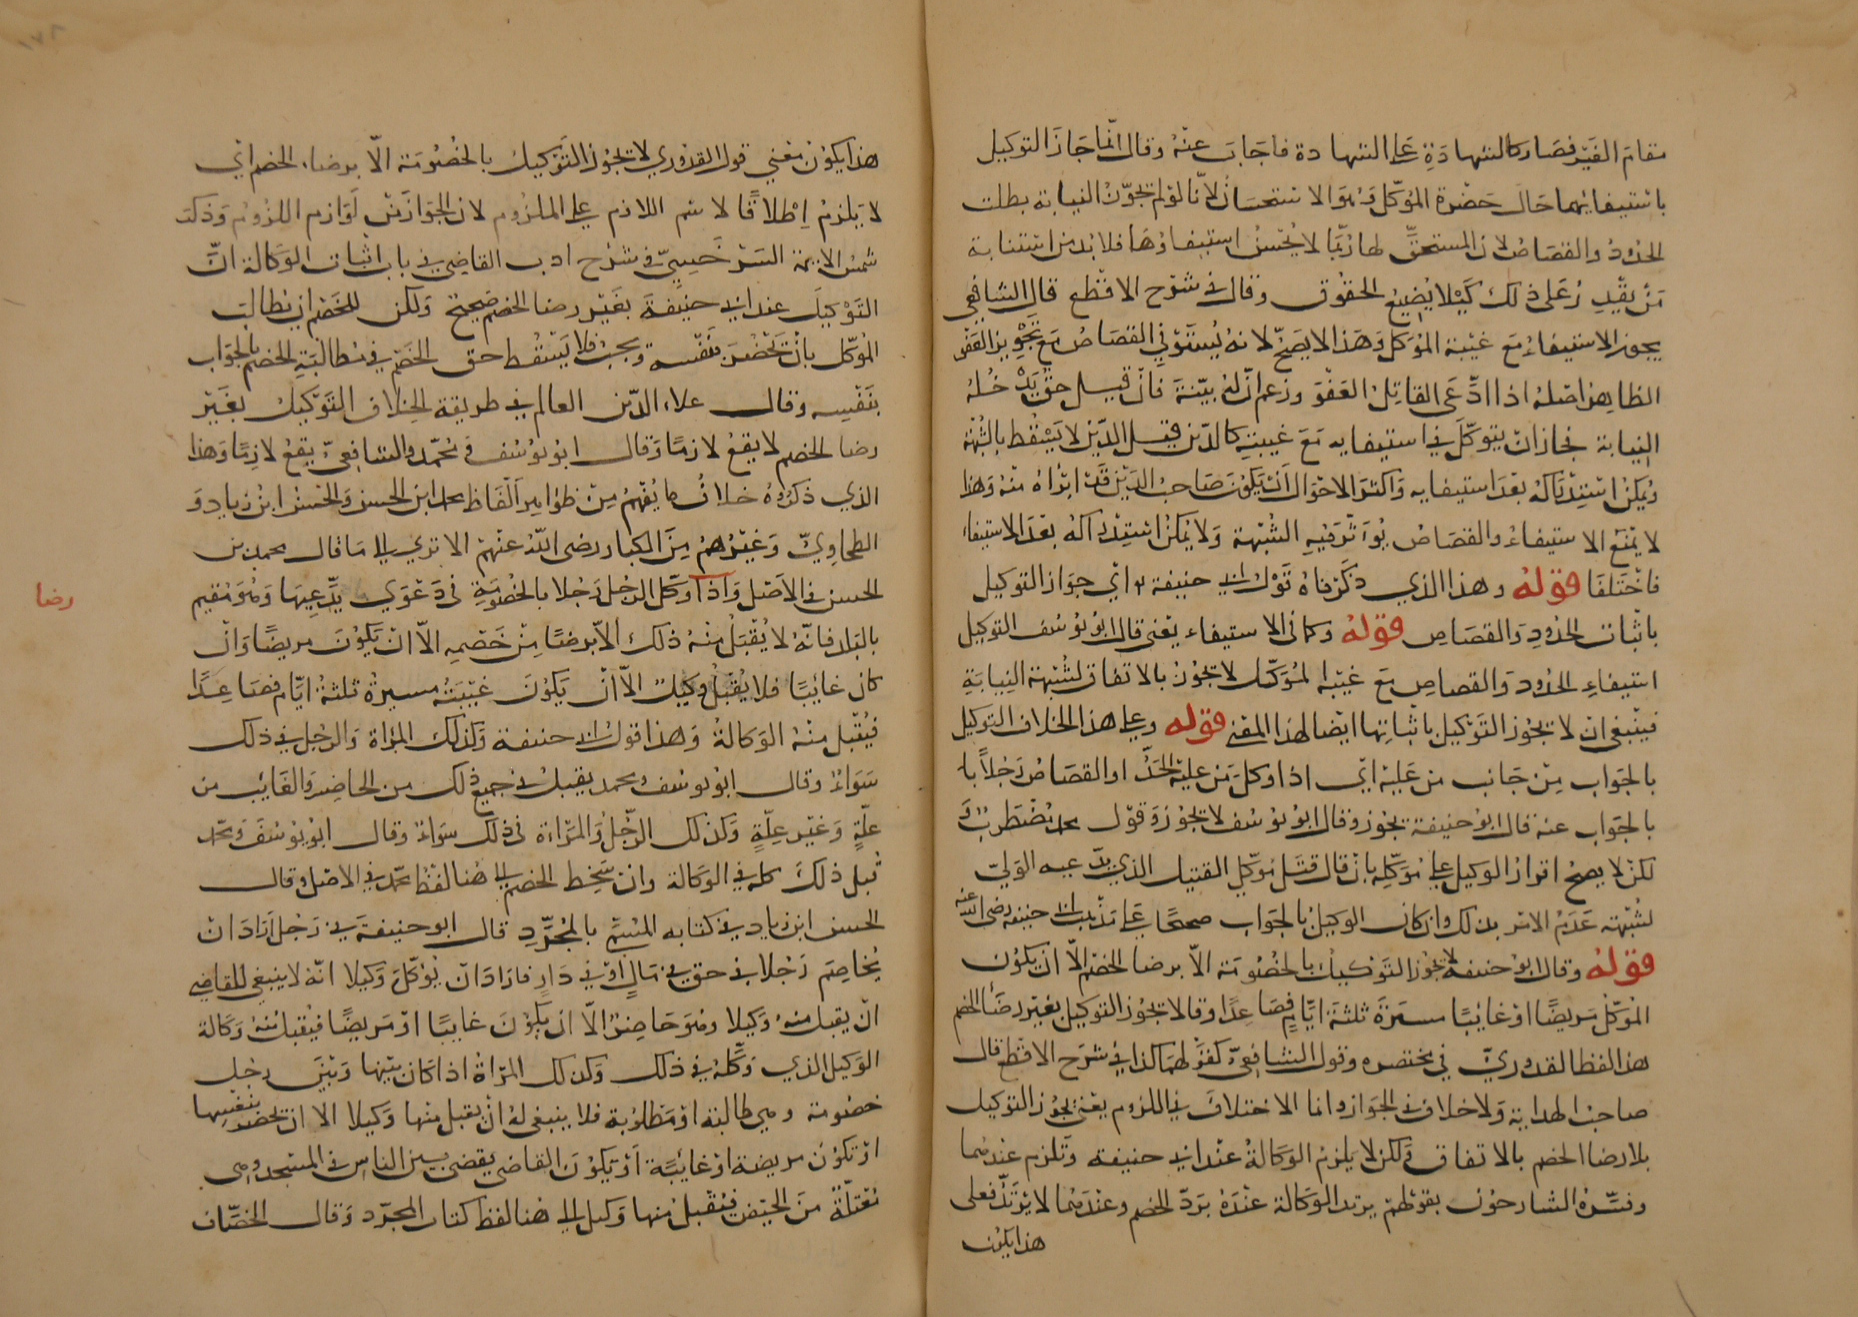 مقام الغير فصار كالشهادة على الشهادة فاجاب عنه وقال انما جاز التوكيل
باستيفائهما حال حضرة الموكل وهو الاستحسان لانا لو لم نجوّز النيابة بطلت
الحدود والقصاص لان المستحق لها ربما لا يحسن استيفاؤها فلا بد من استنابة
من يقدر على ذلك كيلا يضيع الحقوق وقال في شرح الاقطع قال الشافعي
يجوز الاستيفاء مع غيبة الموكل وهذا لا يصح لانه يستوفي القصاص مع تجويز العفو
الظاهر اصله اذا ادعى القاتل العفو وزعم ان له بينة فان قيل حق يدخله
النيابة فجاز ان يتوكل في استيفايه مع غيبته كالدين قيل الدين لا يسقط بالشبهة
ويمكن استدراكه بعد استيفايه واكثر الاحوال ان يكون صاحب الدين قد ابراه منه وهذا
لا يمنع الاستيفاء والقصاص يؤثر فيه الشبهة ولا يمكن استدراكه بعد الاستيفاء
فاختلفا قوله وهذا الذي ذكرناه قول ابي حنيفة اي جواز التوكيل
باثبات الحدود والقصاص قوله وكما في الاستيفاء يعني قال ابو يوسف التوكيل
استيفاء الحدود والقصاص مع غيبة الموكل لا يجوز بالاتفاق لشبهة النيابة
فينبغي ان لا يجوز التوكيل باثباتها ايضا لهذا المعنى قوله وعلى هذا الخلاف التوكيل
بالجواب من جانب من عليه اي اذا وكل من عليه الحد او القصاص رجلا با
بالجواب عنه قال ابو حنيفة يجوز وقال ابو يوسف لا يجوز وقول محمد مضطرب و
لكن لا يصح اقرار الوكيل على موكله بان قال قتل موكلي القتيل الذي يدعيه الولي
لشبهة عدم الامر بذلك وان كان الوكيل بالجواب صحيحا على مذهب ابي حنيفة رضي الله عنه
قوله وقال ابو حنيفة لا يجوز التوكيل بالخصومة الا برضا الخصم الا ان يكون
الموكل مريضا او غائبا مسيرة ثلثة ايام فصاعدا وقالا يجوز التوكيل بغير رضا الخصم
هذا لفظ القدوري في مختصره وقول الشافعي كقولهما كذا في شرح الاقطع قال
صاحب الهداية ولا خلاف في الجواز وانما الاختلاف في اللزوم يعني يجوز التوكيل
بلا رضا الخصم بالاتفاق ولكن لا يلزم الوكالة عند ابي حنيفة وتلزم عندهما
وفسره الشارحون بقولهم يرتد الوكالة عنده برد الخصم وعندهما لا يرتد فعلى
هذا يكون
هذا يكون معني قول القدوري لا يجوز التوكيل بالخصومة الا برضاء الخصم اي
لا يلزم اطلاقا لاسم اللازم على الملزوم لان الجواز من لوازم اللزوم وذكر
شمس الايمة السرخسي في شرح ادب القاضي في باب اثبات الوكالة ان
التوكيل عند ابي حنيفة بغير رضا الخصم صحيح ولكن للخصم ان يطالب
الموكل بان يحضر بنفسه ويجيب فلا يسقط حق الخصم في مطالبة الخصم بالجواب
بنفسه وقال علاء الدين العالم في طريقة الخلاف التوكيل بغير
رضا الخصم لا يقع لازما وقال ابو يوسف و محمد والشافعي يقع لازما وهذا
الذي ذكروه خلاف ما يفهم من ظواهر الفاظ محمد ابن الحسن والحسن ابن زياد و
الطحاوي وغيرهم من الكبار رضى الله عنهم الا ترى الى ما قال محمد بن
الحسن في الاصل واذا وكل الرجل رجلا بالخصومة في دعوي يدعيها وهو مقيم
رضا
بالبلد فانه لا يقبل منه ذلك الا برضا من خصمه الا ان يكون مريضا وان
كان غائبا فلا يقبل وكيل الا ان يكون غيبته مسيرة ثلثة ايام فصاعدا
فيقبل منه الوكالة وهذا قول ابي حنيفة وكذلك المراة والرجل في ذلك
سواء وقال ابو يوسف ومحمد يقبل في جميع ذلك من الحاضر والغائب من
علة وغير علة وكذلك الرجل والمراة في ذلك سواء وقال ابو يوسف ومحمد
قبل ذلك كله في الوكالة وان سخط الخصم الى هنا لفظ محمد في الاصل وقال
الحسن ابن زياد في كتابه المسمى بالمجرد قال ابو حنيفة في رجل اراد ان
يخاصم رجلا في حق في مال او في دار فاراد ان يؤكل وكيلا انه لا ينبغي للقاضي
ان يقبل منه وكيلا وهو حاضر الا ان يكون غايبا او مريضا فيقبل منه وكالة
الوكيل الذي وكله في ذلك وكذلك المراة اذا كان بينها وبين رجل
خصومة وهي طالبة او مطلوبة فلا ينبغي له ان يقبل منها وكيلا الا ان تحضر بنفسها
او تكون مريضة او غائبة او يكون القاضي يقضي بين الناس في المسجد وهي
معتلة من الحيض فيقبل منها وكيل الى هنا لفظ كتاب المجرد وقال الخصاف